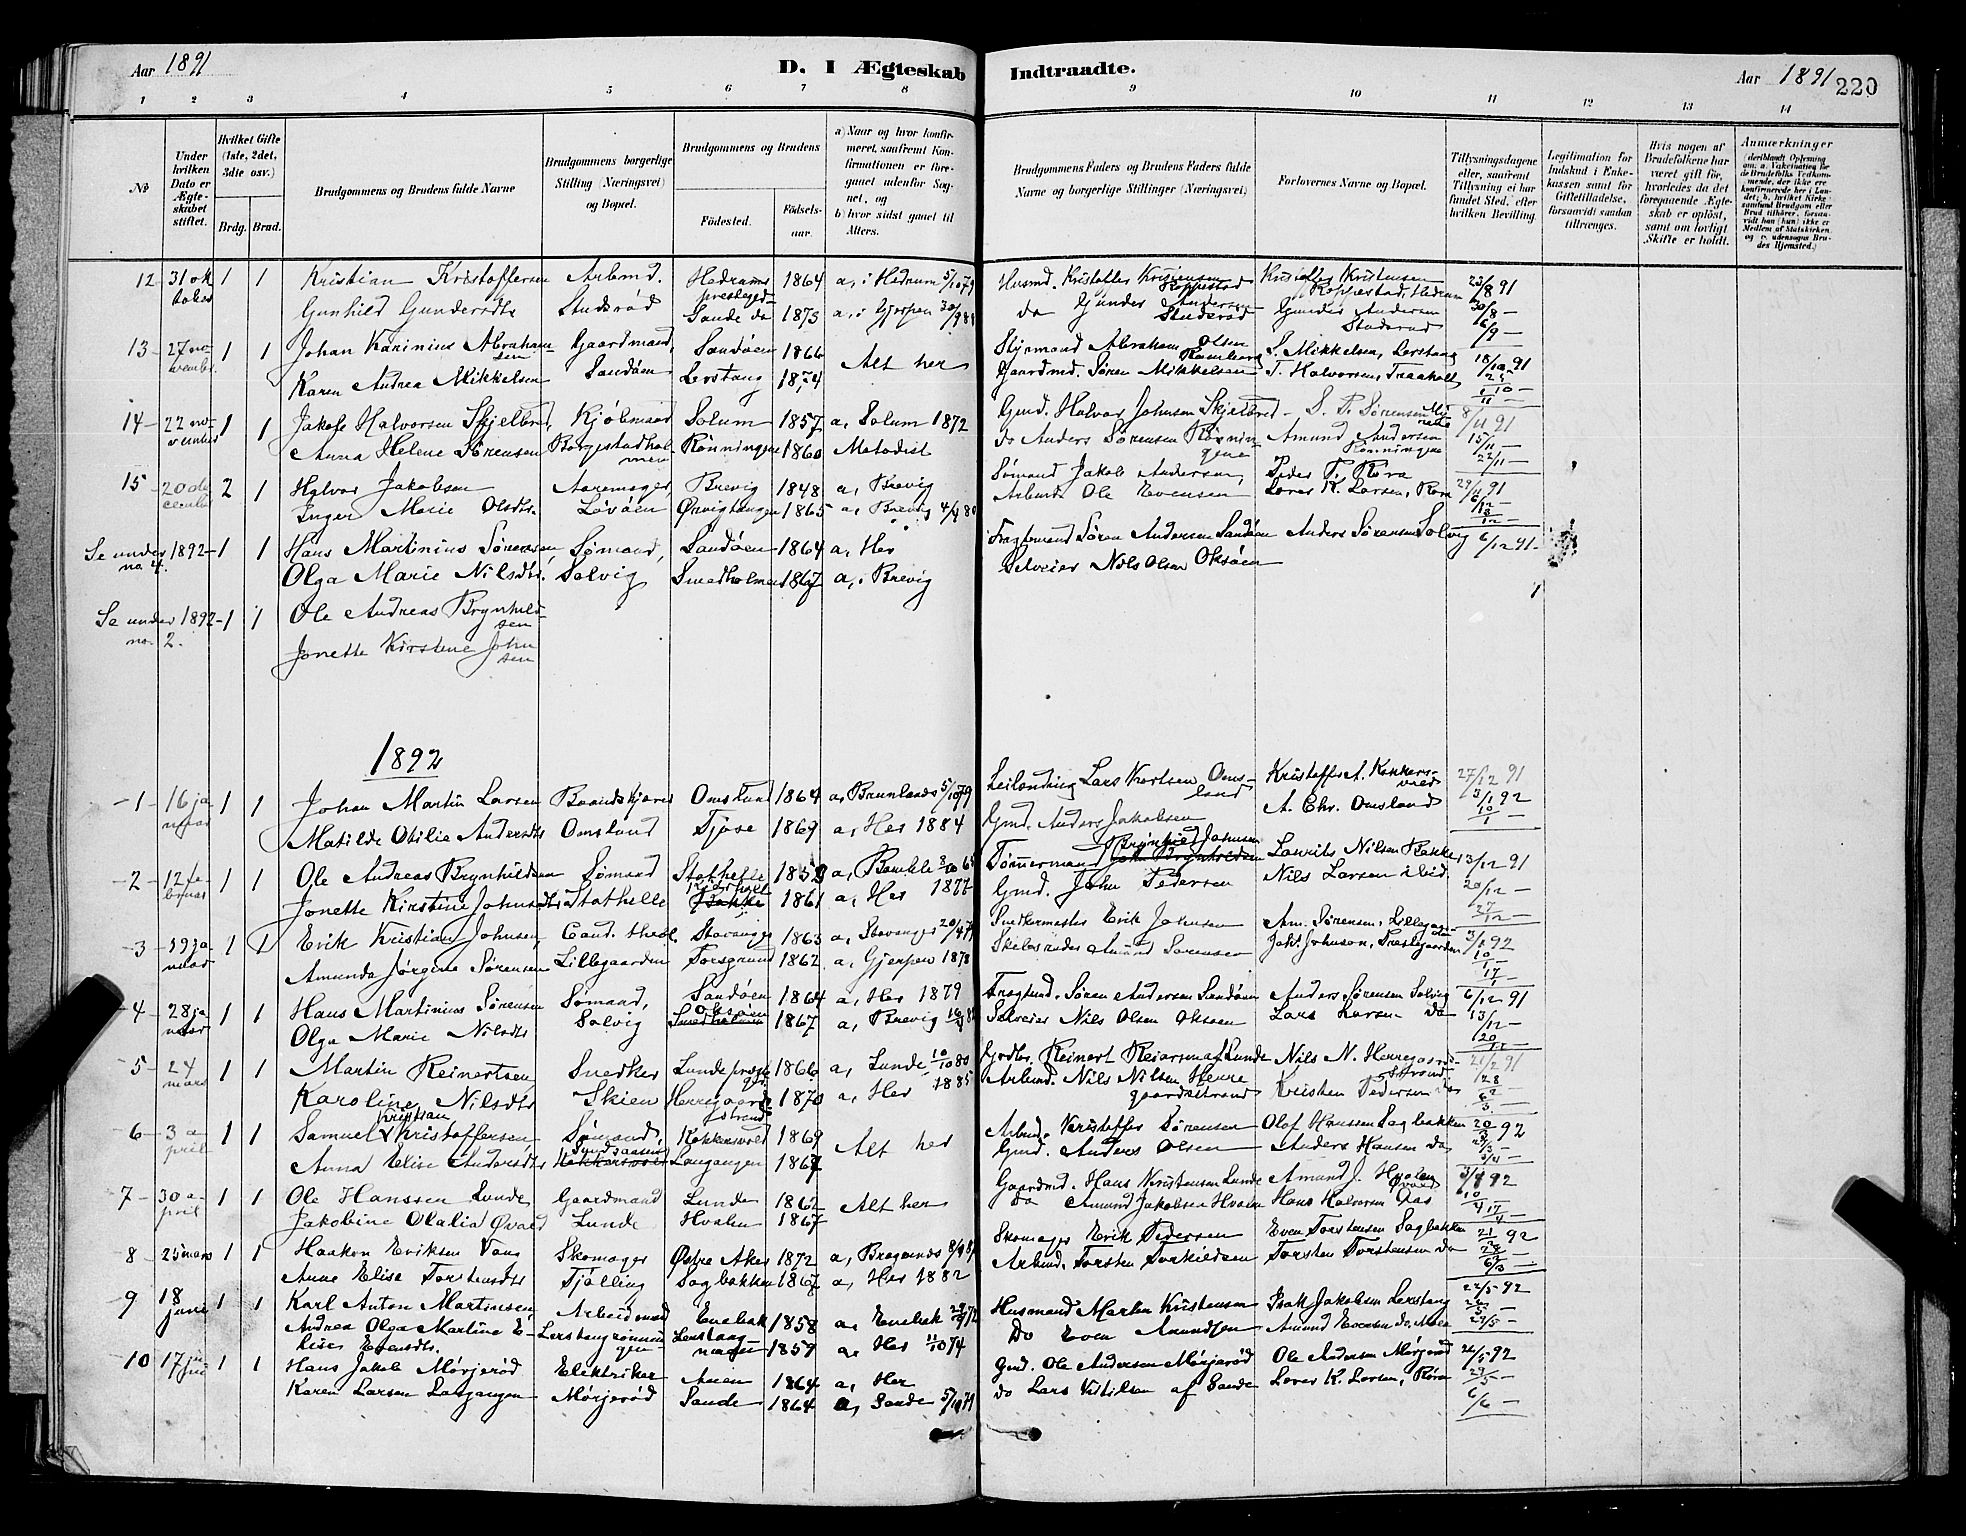 Aar 1891
D. I Ægteskab Indtraadte.
Aar 1891
220
1 2 3 4 5 6 7 8 9 10 11 12 13 14
No
Under hvilken Dato er Ægteskabet stiftet.
Hvilket Gifte (1ste, 2det, 3die osv.)
Brdg. Brud.
Brudgommens og Brudens fulde Navne
Brudgommens borgerlige Stilling (Næringsvei) og Bopæl.
Brudgommens og Brudens
Födested.
Födselsaar.
a) Naar og hvor konfirmeret, saafremt Konfirmationen er foregaaet udenfor Sognet, og
b) hvor sidst gaaet til Alters.
Brudgommens Faders og Brudens Faders fulde Navne og borgerlige Stillinger (Næringsvei)
Forlovernes Navne og Bopæl.
Tillysningsdagene eller, saafremt Tillysning ei har fundet Sted, efter hvilken Bevilling.
Legitimation for Indskud i Enkekassen samt for Giftetilladelse, forsaavidt saadan tiltrænges.
Hvis nogen af Brudefolkene har været gift för, hvorledes da det foregaaende Ægteskab er oplöst, samt om lovligt Skifte er holdt.
Anmærkninger
12 31 oktober 1 1 Kristian Kristoffersen Arbmd. Hedrums prestegjed 1864 a, i Hedrum 5/10 79 Husmd. Kristoffer Kristensen Roppestad Kristoffer Kristensen Roppestad, Hedrum 23/8 91
Gunhild Gundersdtr Studerød Sande do 1873 a, i Gjerpen do Gunder Andersen Studerød Gunder Andersen Studerød 30/8 — 6/9 —
13 27 november 1 1 Johan Karinius Abrahamsen Gaardmand, Sandøen 1866 Alt her Styrmand Abraham Olsen S. Mikkelsen, Lerstang 18/10 91
Karen Andrea Mikkelsen Sandøen Lerstang Gaardmd. Søren Mikkelsen T. Halvorsen, Traaholt
14 22 november 1 1 Jakob Halvorsen Skjelbred, Kjøbmand Solum 1857 a, Solum 1872 Gmd. Halvor Johnsen Skjelbred S. P. Sørensen 8/11 91
Anna Helene Sørensen Borgestadholmen Rønningene 1860 Metodist do Anders Sørensen Rønningene Amund Andersen Rønningene 15/11 — 22/11 —
15 20 december 2 1 Halvor Jakobsen Aaremager Brevig 1848 a, Brevig Sømand Jakob Andersen, Peder T. Røra 29/11 91
Inger Marie Olsdtr. Løvøen Ørvigtangen 1865 a, Brevig Arbmd. Ole Evensen Lover K. Larsen, Røra 6/12 —
Se under no 4. 1892 1 1 Hans Martinius Sørensen Sømand, Sandøen 1864 a, Her Fragtemand Søren Andersen Sandøen Anders Sørensen Solvig 6/12 91
Olga Marie Nilsdtr. Solvig Smedholmen 1867 a, i Brevig Selveier Nils Olsen Oksøen
Se under 1892 no 2. 1 1 Ole Andreas Brynhildsen
Jonette Kirstine Johnsen
1892
1 16 januar 1 1 Johan Martin Larsen Baandskjærer Omsland 1864 a, Brunlanes 5/10 79 Leilænding Lars Omsland Kristoffer A. Kokkersvold 27/12 91
Matilde Otilie Andersdtr Omsland Tjøse 1869 a, Her 1884 Gmd. Anders Jakobsen A. Chr. Omsland 3/1 92 10/1 —
2 12 februar 1 1 Ole Andreas Brynhildsen Sømand Stathelle a, Bamble Tømmermand Brynhild Johnsen Laurits Nilsen Bakke 13/12 91
Jonette Kirstine Johnsdtr Stathelle Bakke 1861 a, Her 1877 Gmd. John Pedersen Nils Larsen ibid. 20/12 — 27/12 —
3 19 januar 1 1 Erik Kristian Johnsen, Cand. theol. Stavanger 1863 a, Stavanger 20/4 79 Snedkermester Erik Johnsen Am. Sørensen, Lillegaarden 3/1 92
Amunda Jørgine Sørensen Lillegaarden Porsgrund 1862 a, Gjerpen 1878 Skibsreder Amund Sørensen Joh. Johnson, Prestegaarden 10/1 — 17/1 —
4 28 januar 1 1 Hans Martinius Sørensen Sømand, Sandøen 1864 a, Her 1879 Fragtmd. Søren Andersen Sandøen Anders Sørensen Solvig 6/12 91
Olga Marie Nilsdtr Solvig Oksøen Smedholmen 1867 a, Brevig Selveier Nils Olsen Oksøen Lars Larsen do 13/12 — 20/12 —
5 24 mars 1 1 Martin Reinertsen Snedker Lunde prestegj 1866 a, Lunde 10/10 80 Grdbr. Reinert Reiarsen af Lunde Nils N. Herregaardsstrand 21/2 91
Karoline Nilsdtr Skien Herregaardsstrand 1870 a, Her 1885 Arbmd. Nils Nilsen Herregaardsstrand Kristen Pedersen do 28/2 — 6/3 —
6 3 april 1 1 Samuel Kristian Kristoffersen Sømand, Kokkersvold 1869 Alt her Arbmd. Kristoffer Sørensen Olof Hanssen Sagbakken 20/3 92
Anna Elise Andersdtr Kokkersvold Langangen 1867 Gmd. Anders Olsen Anders Hansen do 27/3 —
7 30 april 1 1 Ole Hanssen Lunde Gaardmand Lunde 1862 Alt her Gaardmd. Hans Kristensen Lunde Amund J. Hvalen 3/4 92
Jakobine Olalia Øvald Lunde Hvalen 1867 do Amund Jakobsen Hvalen Hans Halvorsen Aas 10/4 17/4 —
8 25 mars 1 1 Haakon Eriksen Vang Skomager Østre Aker 1872 a, Bragernes Skomager Erik Pedersen Even Torstensen Sagbakken 21/2 92
Anne Elise Torstensdtr Tjølling Sagbakken 1867 a, Her 1882 Arbmd. Torsten Torkildsen Torsten Torstensen do 28/2 — 6/3 —
9 18 juni 1 1 Karl Anton Martinsen Arbeidsmd Enebak 1858 a, Enebak Husmand Martin Kristensen Isak Jakobsen Lerstang 22/5 92
Andrea Olga Martine Elise Evensdtr. Lerstang 1859 a, Her 11/10 74 Do Even Amundsen Amund Evensen do 29/5 —
10 17 juni 1 1 Hans Jakob Mørjerød Elektriker Auen 1864 a, Her Gmd. Ole Andersen Mørjerød Ole Andersen Mørjerød 22/5 92
Karen Larsen Langangen Mørjerød Sande 1864 a, Sande 5/10 79 do Lars Kittilsen af Sande Lover K. Larsen, Røra 29/5 — 6/6 —